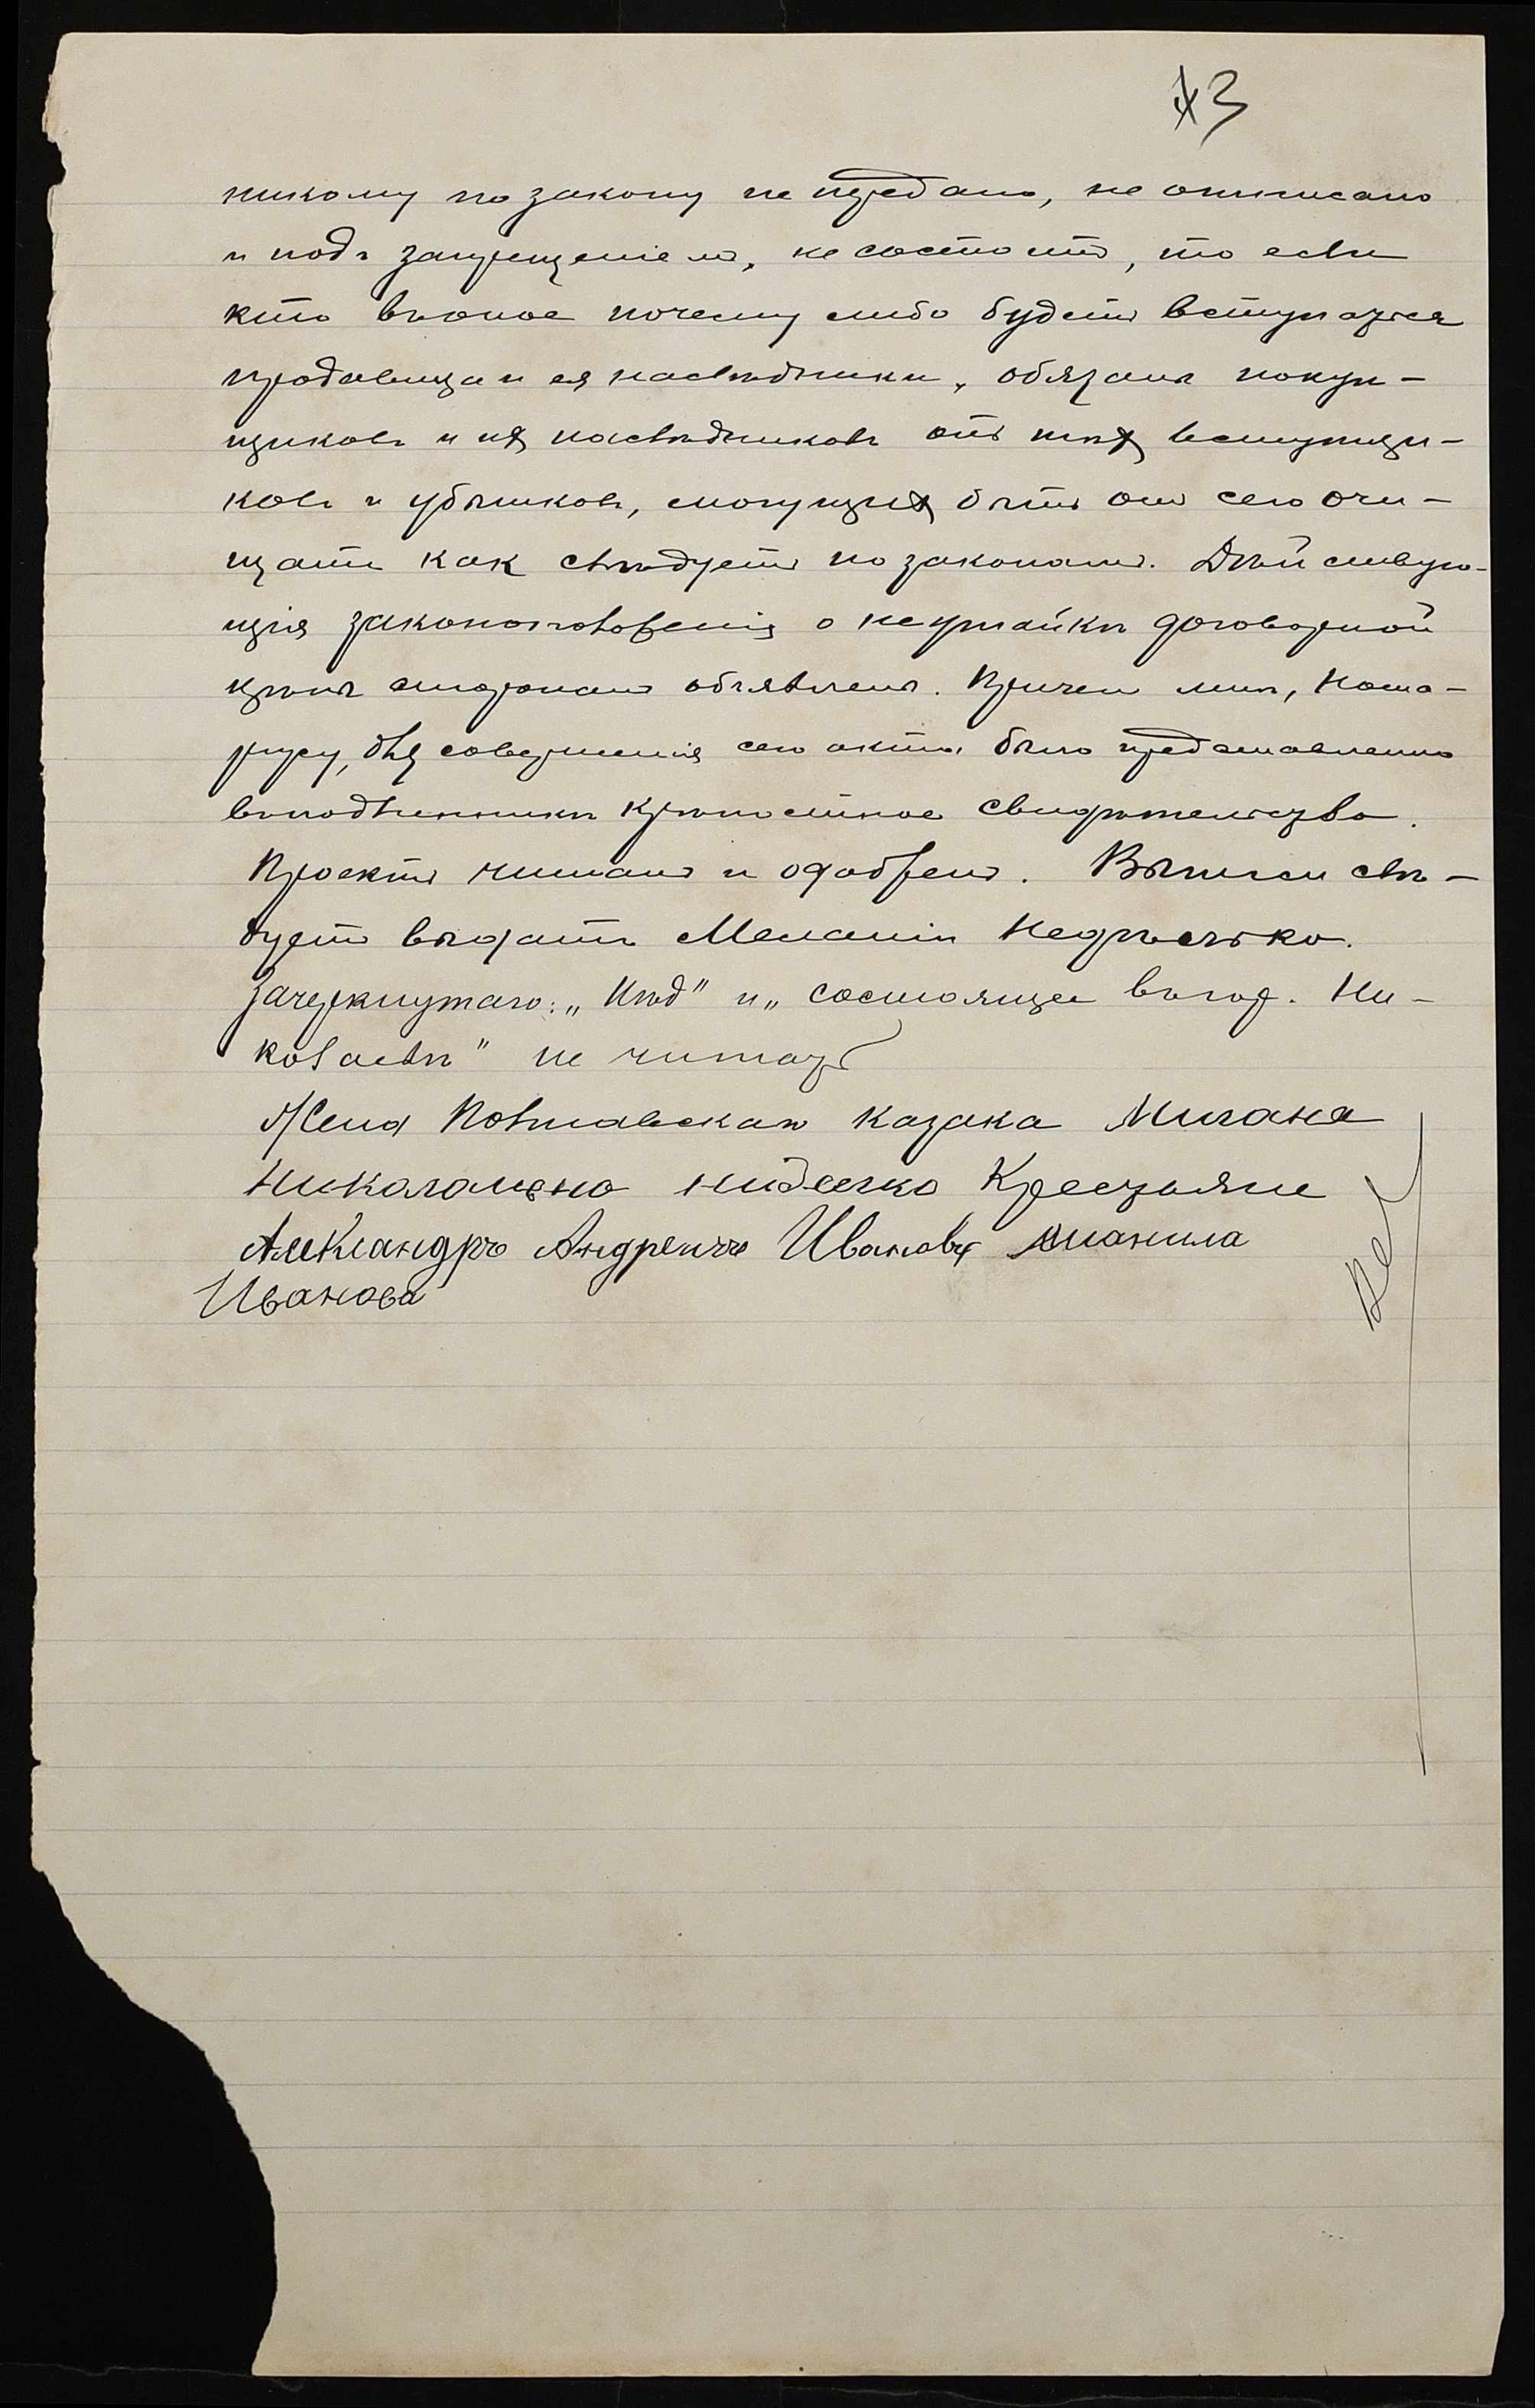 73
никому по закону не продано, не отписано
и подъ запрещеніемъ, не состоитъ, то если
кто въ оное почему либо будетъ вступаться
продавица и ея наслѣдники, обязаны покуп-
щиковъ и ихъ наслѣдниковъ отъ тѣхъ вступщи-
ковъ и убытковъ, могущихъ быть отъ сего очи-
щать какъ слѣдуетъ по законамъ. Дѣйствую-
щія законоположенія о неустойкѣ договорной
цѣны сторонамъ объявлены. Причемъ мнѣ, Нота-
ріусу, для совершенія сего акта было представлено
въ подлинникѣ крѣпостное свидѣтельство.
Проектъ читанъ и одобренъ. Выпись слѣ-
дуетъ выдать Меланіи Недѣлько.
Зачеркнутаго: „ и „состоящее въ гор. Ни-
колаевѣ" не читать
Жена Полтавскаго казака
Николаевна Крестьяне
Александръ Андреичъ Ивановъ
Иванова